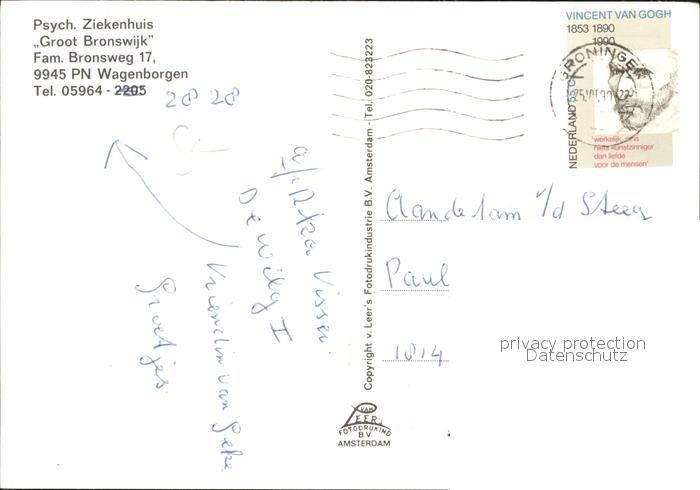 Psych. Ziekenhuis
„Groot Bronswijk”
Fam. Bronsweg 17,
9945 PN Wagenborgen
Tel. 05964 - 2205
28 28
a/p Rka Visser
De Wilg I
Vriendin van Peke
Groetjes
Copyright v. Leer's Fotodrukindustrie B.V. Amsterdam - Tel. 020-823223
VAN
LEER's
FOTODRUKIND
B.V.
AMSTERDAM
VINCENT VAN GOGH
1853 1890
1990
NEDERLAND 55 c
GRONINGEN
werkelijk, er is
niets kunstzinniger
dan liefde
voor de mensen'
Aan de fam v/d Steeg
Paul
1814
privacy protection
Datenschutz